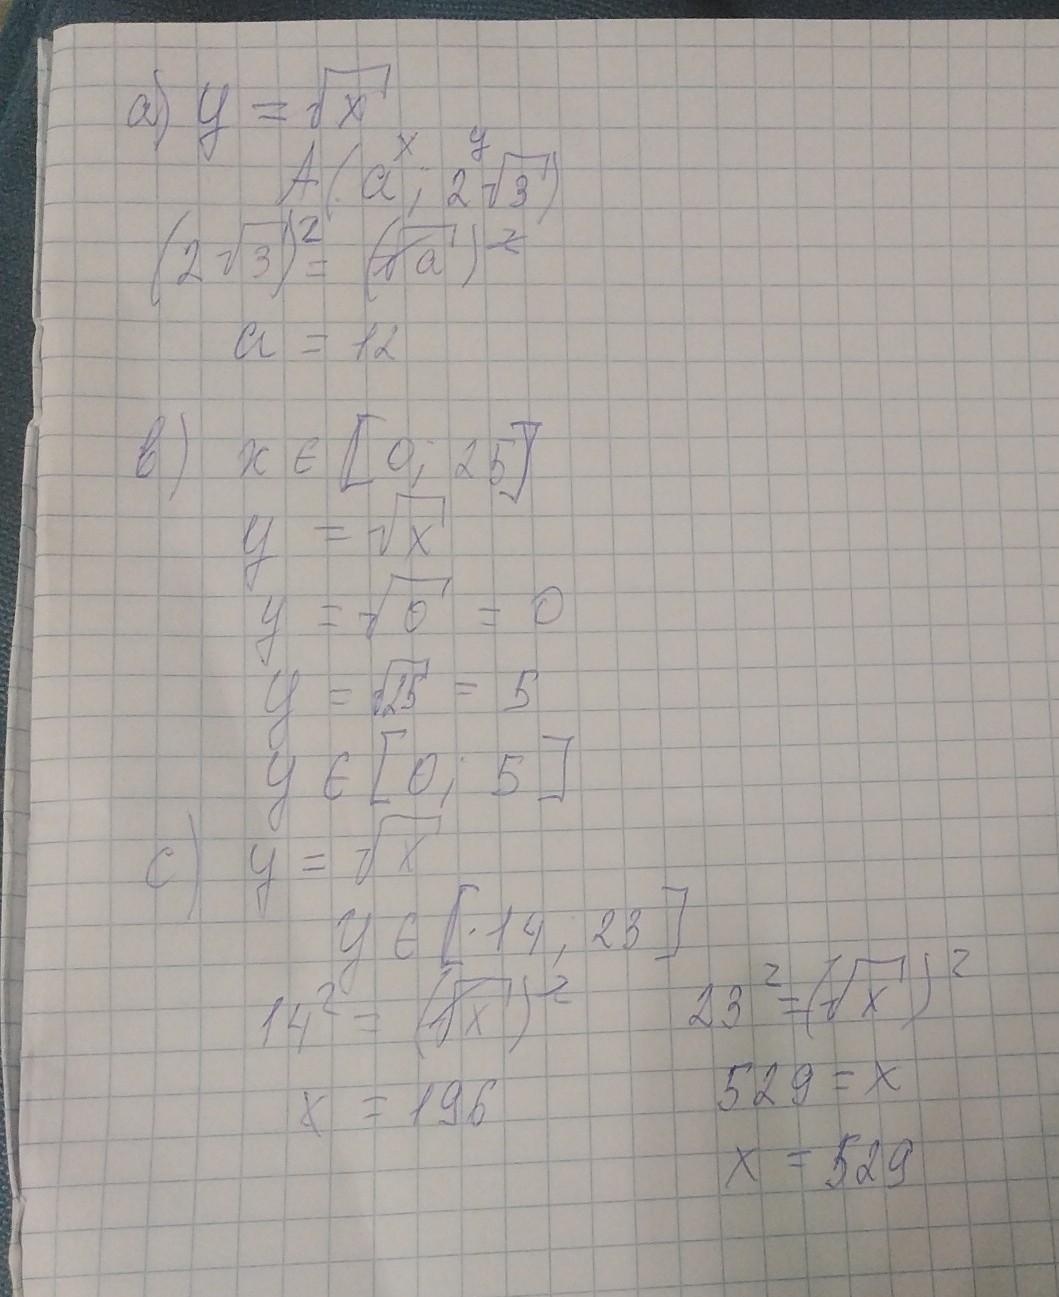 a) y = √x
x y
A(a; 2√3)
(2√3)² = (√a)²
a = 12
b) x ∈ [0; 25]
y = √x
y = √0 = 0
y = √25 = 5
y ∈ [0; 5]
c) y = √x
y ∈ [14; 23]
14² = (√x)² 23² = (√x)²
x = 196 529 = x
x = 529